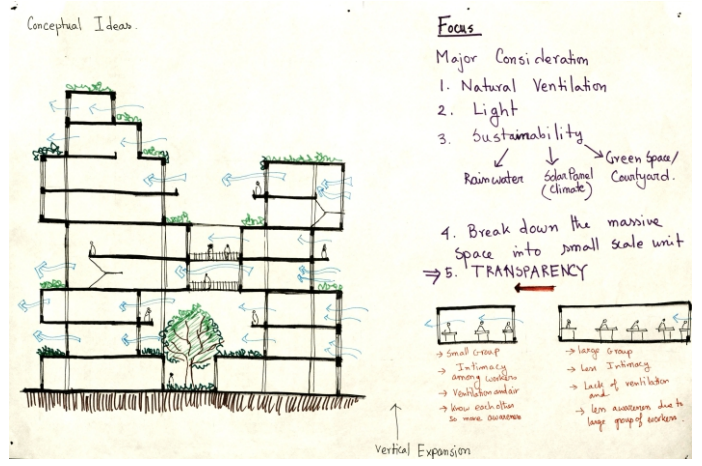 Conceptual Ideas.
Focus
Major Consideration
1. Natural Ventilation
2. Light
3. Sustainability
Rainwater
Solar Panel
(Climate)
Green Space/
Courtyard.
4. Break down the massive
space into small scale unit
⇒ 5. TRANSPARENCY
→ Small Group
→ Intimacy
among workers
→ Ventilation and air
→ Know each other
so more awareness
→ large Group
→ Less Intimacy
→ Lack of ventilation
and
→ less awareness due to
large group of workers.
Vertical Expansion